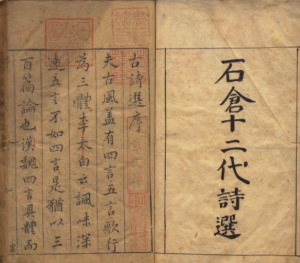 石倉十二代詩選
古詩選序
夫古風蓋有四言五言歌行
為三體李太白云諷味深
遠五言不如四言是猶以三
百篇論也漢魏四言具體而